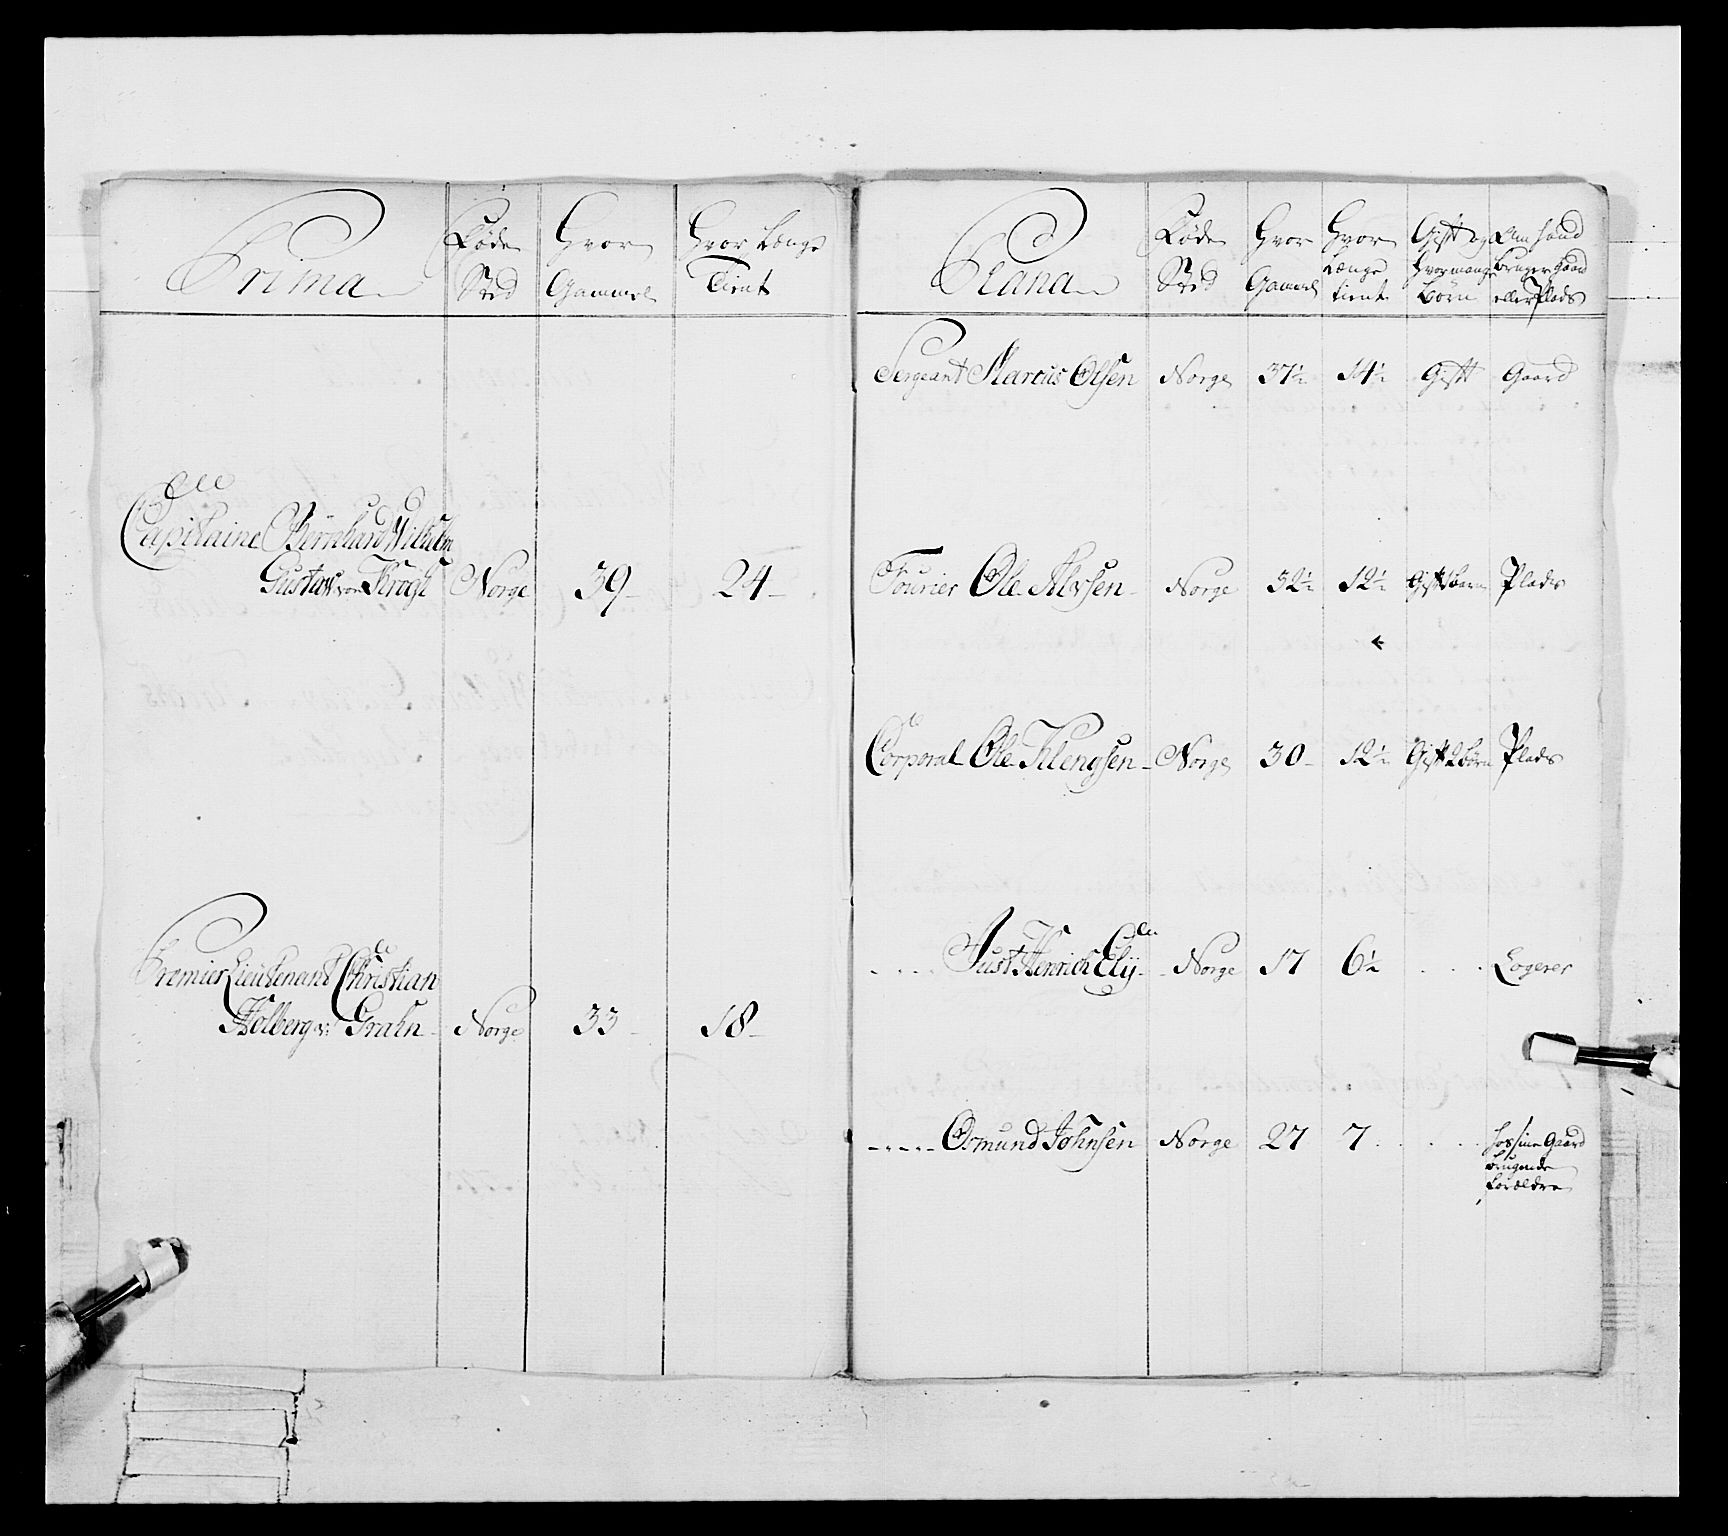 Prima
Føde
Sted
Hvor
Gammel
Hvor Længe
Tient
Capitaine Bernhard Wilhelm
Gustav von Krogh Norge 39 24
Premier Lieutenant Christian
Holberg v: Grahn Norge 33 18
Plana
Føde
Sted
Hvor
Gammel
Hvor
Længe
tient
Gift og
hvormange
Børn
Om hand
bruger Gaard
eller Plads
Sergeant Marcus Olsen Norge 37½ 14½ Gift Gaard
Fourier Ole Alvsen Norge 32½ 12½ Gift 1 barn Plads
Corporal Ole Klengsen Norge 30 12½ Gift 2 børn Plads
Just Henrich Elij Norge 17 6½ Logerer
Osmund Johnsen Norge 27 7 hos sine Gaard
brugende
Forældre